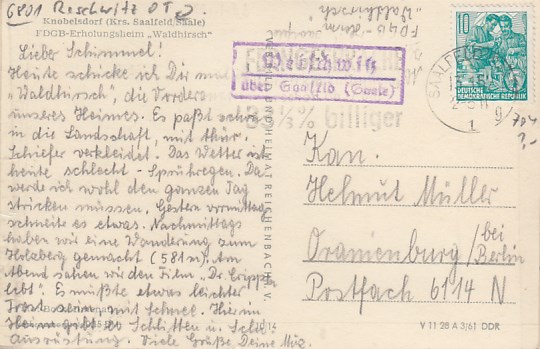 6801 Reschwitz OT
Knobelsdorf (Krs. Saalfeld/Saale)
FDGB-Erholungsheim „Waldhirsch"
Lieber Schimmel!
Heute schicke ich Dir mal
"Waldhirsch", die Vorder
unseres Heimes. Es paßt schön
in die Landschaft, mit thür.
Schiefer verkleidet. Das Wetter ist
heute schlecht - Sprühregen. Da
werde ich wohl den ganzen Tag
stricken müssen. Gestern vormittag
schneite es etwas. Nachmittags
haben wir eine Wanderung zum
Holzberg gemacht (581 m). Am
Abend sahen wir den Film „Dr. Crippen
lebt". Es müßte etwas leichter
Frost sein, mit Schnee. Hier im
Heim gibt es Schlitten u. Schi
Ausrüstung. Viele Grüße, Deine
VERLAG BILD UND HEIMAT REICHENBACH I. V.
FDGB-Heim
"Waldhirsch"
über Saalfeld (Saale)
33⅓% billiger
SAALFELD
10
DEUTSCHE
DEMOKRATISCHE REPUBLIK
Kan.
Helmut Müller
Oranienburg / bei Berlin
Postfach 6114 N
V 11 28 A 3/61 DDR